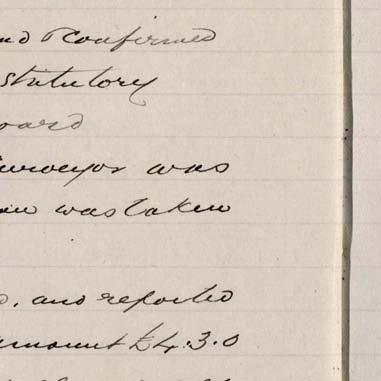 and confirmed
statutory
oard
surveyor was
was taken
and reported
amount £4.3.0